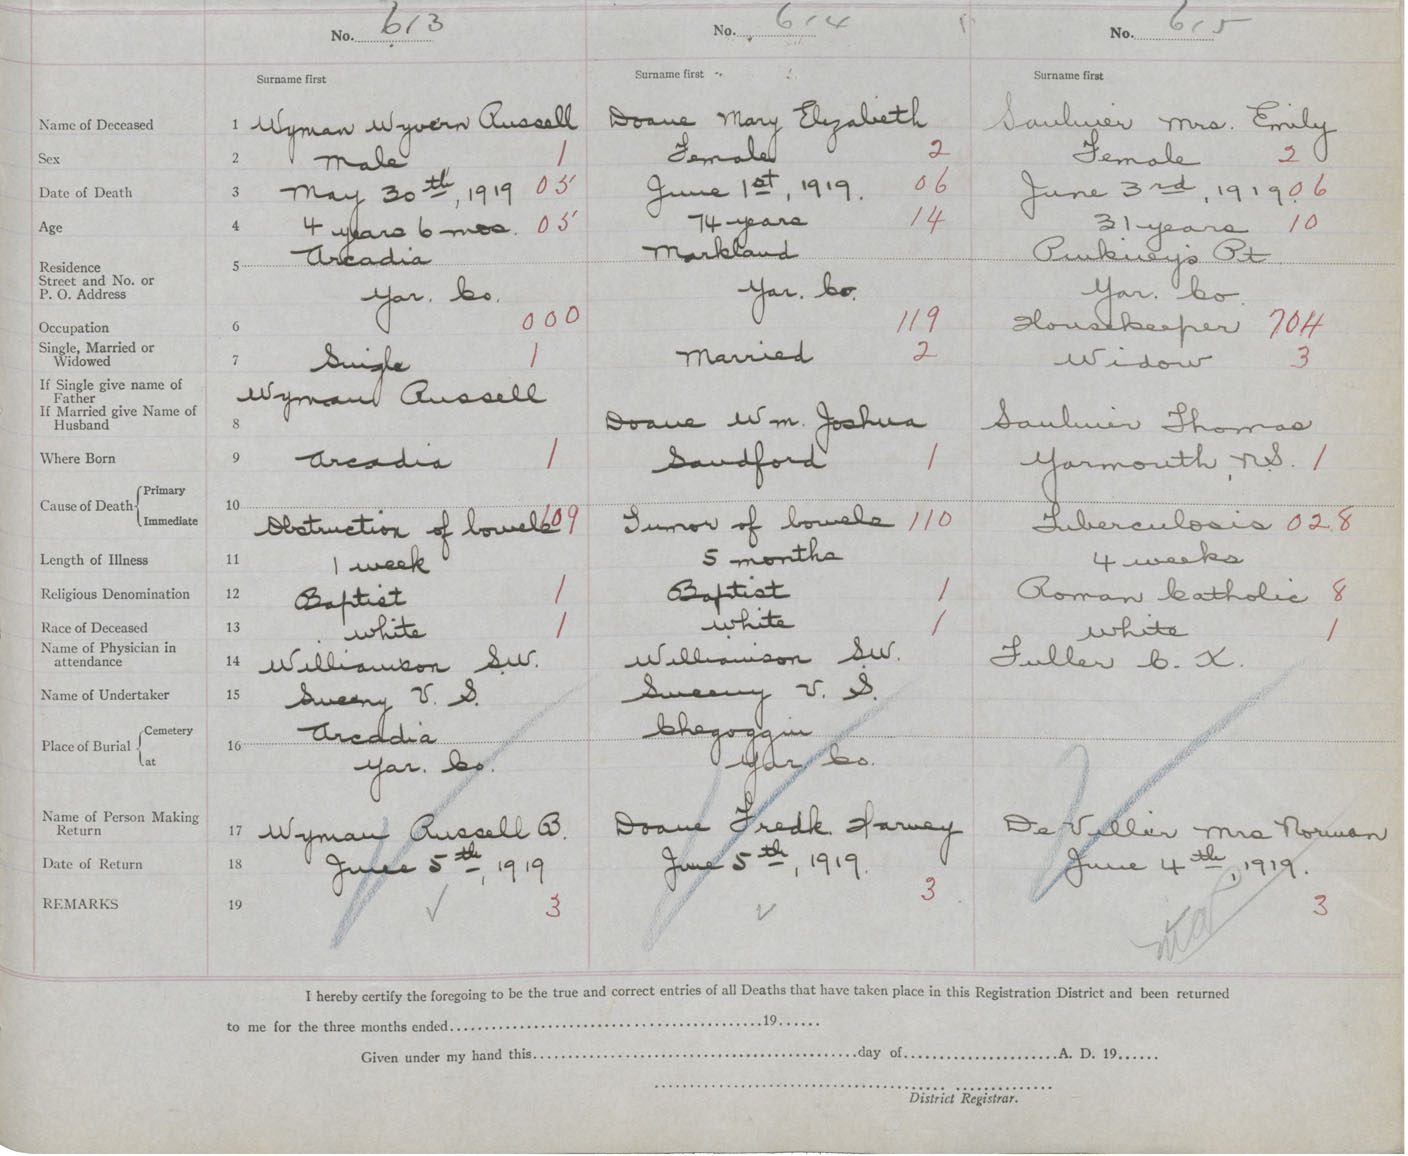 No. 613 No. 614 No. 615
Surname first Surname first Surname first
Name of Deceased 1 Wyman Wyvern Russell Doane Mary Elizabeth Saulnier Mrs. Emily
Sex 2 Male 1 Female 2 Female 2
Date of Death 3 May 30th, 1919 05 June 1st, 1919. 06 June 3rd, 1919. 06
Age 4 4 years 6 mos. 05 74 years 14 31 years 10
Residence 5 Arcadia Markland Pinkney's Pt
Street and No. or
P. O. Address Yar. Co. Yar. Co. Yar. Co.
Occupation 6 000 119 Housekeeper 704
Single, Married or
Widowed 7 Single 1 Married 2 Widow 3
If Single give name of
Father Wyman Russell
If Married give Name of
Husband 8 Doane Wm. Joshua Saulnier Thomas
Where Born 9 Arcadia 1 Sandford 1 Yarmouth, N.S. 1
Cause of Death { Primary 10
Immediate Obstruction of bowels 109 Tumor of bowels 110 Tuberculosis 028
Length of Illness 11 1 week 5 months 4 weeks
Religious Denomination 12 Baptist 1 Baptist 1 Roman Catholic 8
Race of Deceased 13 white 1 white 1 white 1
Name of Physician in
attendance 14 Williamson S.W. Williamson S.W. Fuller C. X.
Name of Undertaker 15 Sweeny V. S. Sweeny V. S.
Place of Burial { Cemetery 16 Arcadia Chegoggin
at Yar. Co. Yar. Co.
Name of Person Making
Return 17 Wyman Russell B. Doane Fredk. Harvey DeVillier Mrs Norman
Date of Return 18 June 5th, 1919 June 5th, 1919. June 4th, 1919.
REMARKS 19 ✓ 3 ✓ 3 3
I hereby certify the foregoing to be the true and correct entries of all Deaths that have taken place in this Registration District and been returned
to me for the three months ended..........19......
Given under my hand this..........day of..........A. D. 19......
District Registrar.